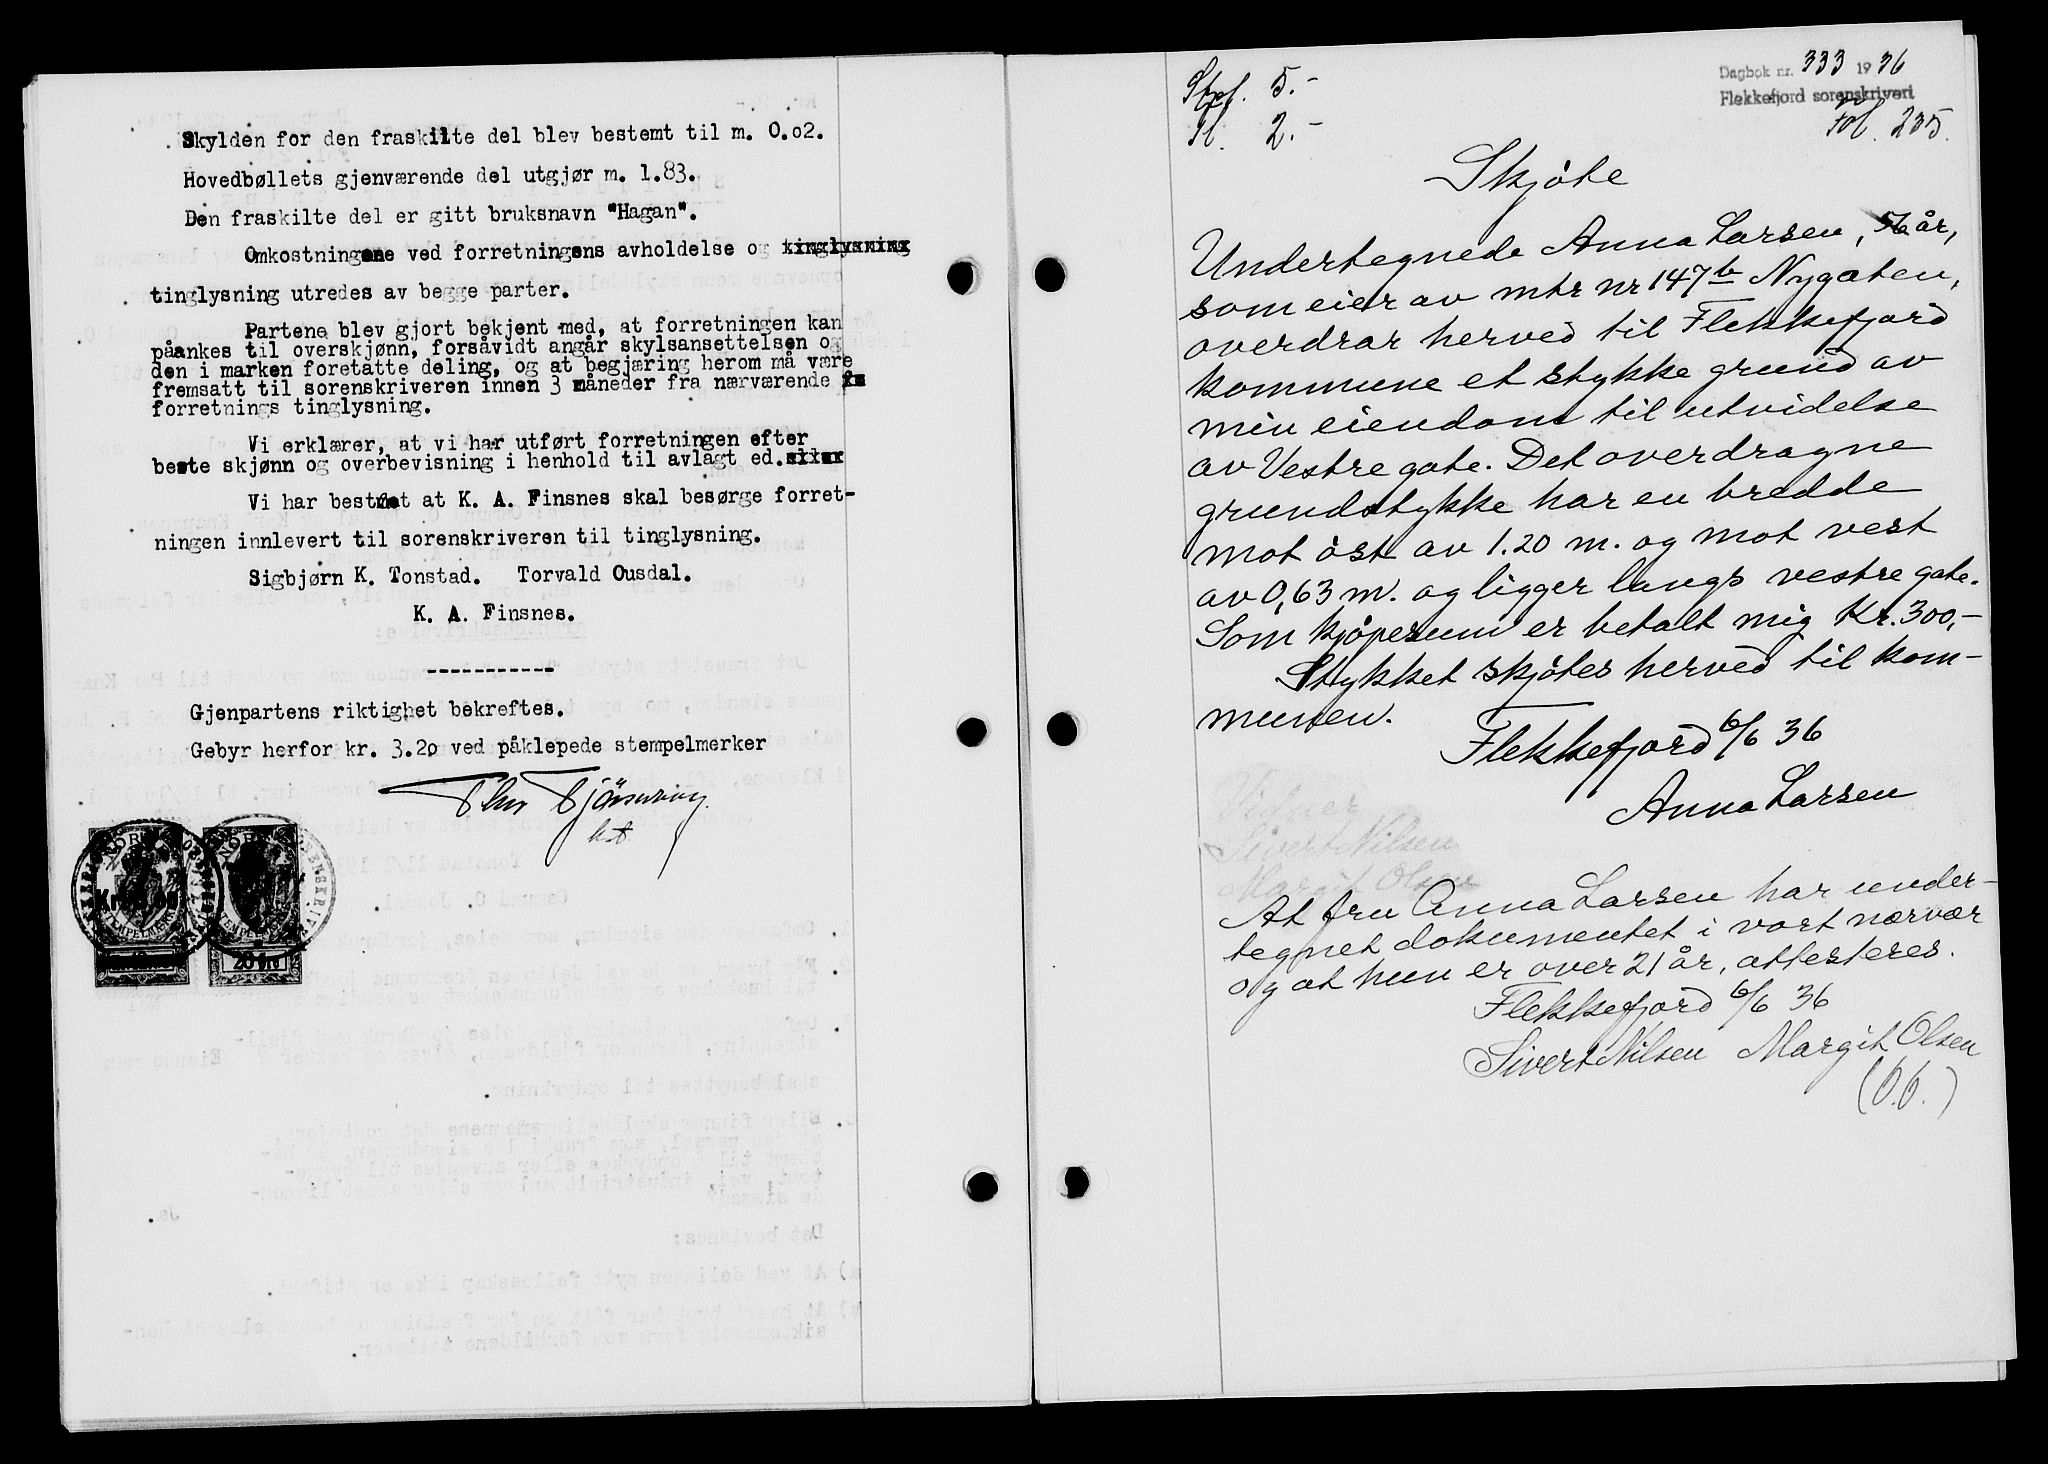 Skylden for den fraskilte del blev bestemt til m. 0.02.
Hovedbøllets gjenværende del utgjør m. 1.83.
Den fraskilte del er gitt bruksnavn "Hagan".
Omkostningene ved forretningens avholdelse og tinglysning
tinglysning utredes av begge parter.
Partene blev gjort bekjent med, at forretningen kan
påankes til overskjønn, forsåvidt angår skylsansettelsen og
den i marken foretatte deling, og at begjæring herom må være
fremsatt til sorenskriveren innen 3 måneder fra nærværende
forretnings tinglysning.
Vi erklærer, at vi har utført forretningen efter
beste skjønn og overbevisning i henhold til avlagt ed. eller
Vi har bestemt at K. A. Finsnes skal besørge forret-
ningen innlevert til sorenskriveren til tinglysning.
Sigbjørn K. Tonstad. Torvald Ousdal.
K. A. Finsnes.
-----------
Gjenpartens riktighet bekreftes.
Gebyr herfor kr. 3.20 ved påklepede stempelmerker
NORGE NORGE
STEMPELMERKE STEMPELMERKE
20 øre
Dagbok nr. 333 1936
Flekkefjord sorenskriveri
Fol. 235.
Stpl. 5.-
Tl. 2.-
Skjöte
Undertegnede Anna Larsen, 56 år,
som eier av mtr nr 147b Nygaten,
overdrar herved til Flekkefjord
kommune et stykke grund av
min eiendom til utvidelse
av Vestre gate. Det overdragne
grundstykke har en bredde
mot öst av 1.20 m. og mot vest
av 0,63 m. og ligger langs vestre gate.
Som kjöpesum er betalt mig Kr. 300,-
Stykket skjötes herved til kom-
munen.
Flekkefjord 6/6 36
Anna Larsen
Vidner
Sivert Nilsen
Margit Olsen
At fru Anna Larsen har under-
tegnet dokumentet i vort nærvær
og at hun er over 21 år, attesteres.
Flekkefjord 6/6 36
Sivert Nilsen Margit Olsen